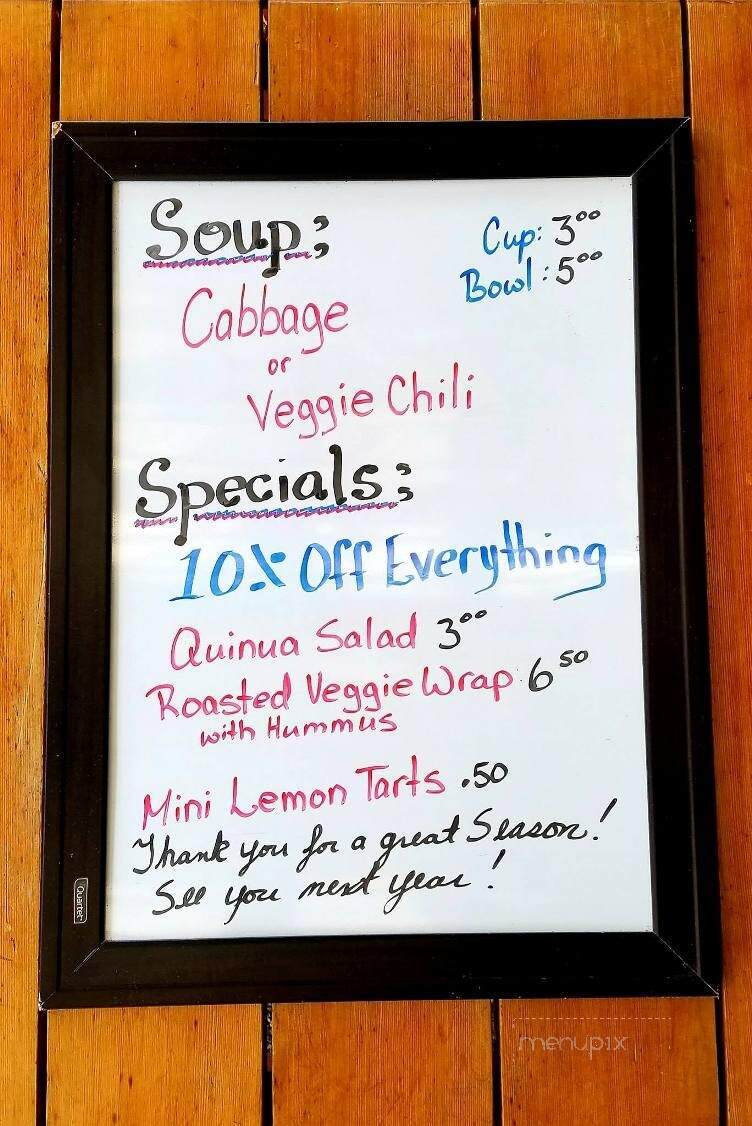 Soup:
Cup: 3⁰⁰
Bowl: 5⁰⁰
Cabbage
or
Veggie Chili
Specials:
10% Off Everything
Quinua Salad 3⁰⁰
Roasted Veggie Wrap 6⁵⁰
with Hummus
Mini Lemon Tarts .50
Thank you for a great Season!
See you next year!
Quartet
menupix